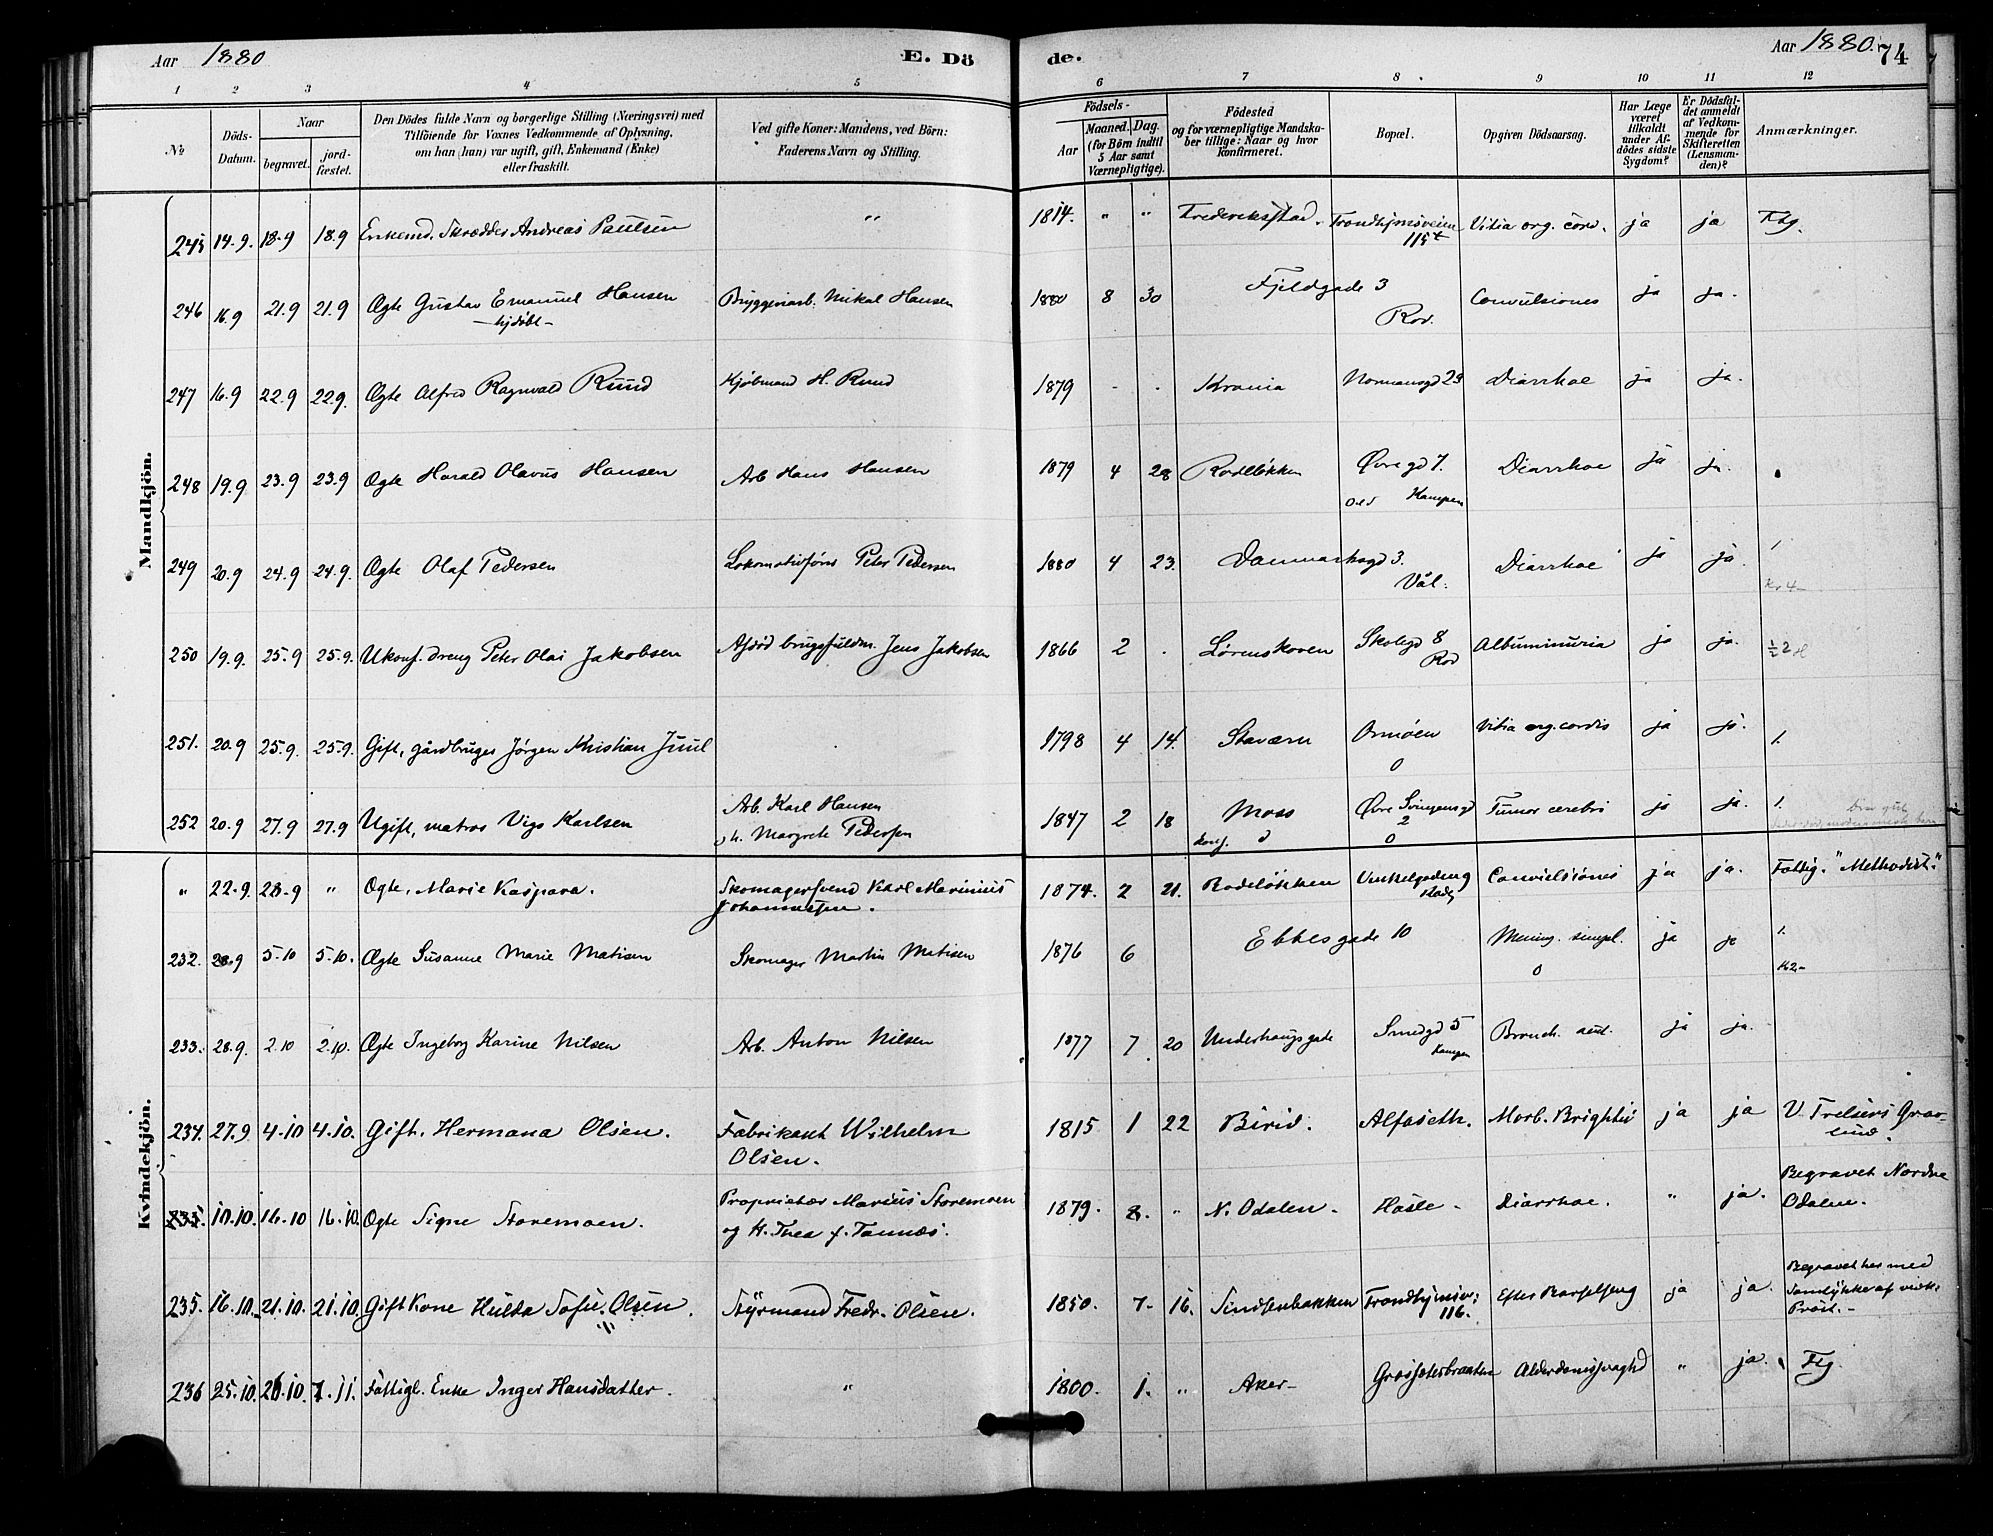 Aar 1880 E. Dö de. Aar 1880. 74
1 2 3 4 5 6 7 8 9 10 11 12
№
Döds-Datum.
Naar
begravet.
jord-fæstet.
Den Dödes fulde Navn og borgerlige Stilling (Næringsvei) med
Tilföiende for Voxnes Vedkommende af Oplysning,
om han (hun) var ugift, gift, Enkemand (Enke)
eller fraskilt.
Ved gifte Koner: Mandens, ved Börn:
Faderens Navn og Stilling.
Födsels-
Aar
Maaned. Dag.
(for Börn indtil
5 Aar samt
Værnepligtige).
Födested
og for værnepligtige Mandska-
ber tillige: Naar og hvor
konfirmeret.
Bopæl.
Opgiven Dödsaarsag.
Har Læge
været
tilkaldt
under Af-
dödes sidste
Sygdom?
Er Dödsfal-
det anmeldt
af Vedkom-
mende for
Skifteretten
(Lensman-
den)?
Anmærkninger.
Mandkjön.
245 14.9. 18.9 18.9 Enkemd. Skrædder Andreas Paulsen " 1814. " " Frederikstad. Trondhjmsveien Vitia org. cord. ja ja Ftg.
115
246 16.9 21.9 21.9 Ægte Gustav Emanuel Hansen Bryggeriarb. Mikal Hansen 1880 8 30 Fjeldgade 3 Convulsiones ja ja.
-hjdöbt- Rod.
247 16.9 22.9 22.9. Ægte Alfred Ragnvald Ruud Kjöbmand H. Ruud 1879 . . Krania Normansgd 23 Diarrhoe ja ja.
248 19.9 23.9 23.9 Ægte Harald Olavus Hansen Arb Hans Hansen 1879 4 28 Rodeløkken Øvregd 7. Diarrhoe ja ja.
Kampen
249 20.9 24.9 24.9. Ægte Olaf Pedersen Lokomotivförer Peter Pedersen 1880 4 23. Danmarksgd 3. Diarrhoe ja ja. 1.
Vål. Kr 4-
250 19.9. 25.9 25.9. Ukonf. dreng Peter Olai Jakobsen Afdød brugsfuldm. Jens Jakobsen 1866 2 . Lørenskoven Skolegd 8 Albuminuria ja ja. ½
Rod
251. 20.9 25.9. 25.9. Gift, gårdbruger Jørgen Kristian Juul 1798 4 14. Staværn Ormøen Vitia org. cordis ja ja. 1.
0
252 20.9 27.9 27.9 Ugift, matros Vigo Karlsen Arb. Karl Hansen 1847 2 18 Moss Øvre Svingensgd Tumor cerebri ja ja. 1.
h. Margrete Pedersen konf. d 2
0
Kvindekjön.
" 22.9. 28.9 " Ægte, Marie Kaspara. Skomagersvend Karl Marinius 1874. 2 21. Rodeløkken Vinkelgaden 9 Convulsiones ja ja. Fattig. "Methodist."
Johannessen. Rod
232. 28.9 5.10 5.10. Ægte Susanne Marie Matisen Skomager Martin Matisen 1876 6 Ebbesgade 10 Mening. simpl. ja ja 1.
0 K2.-
233. 28.9. 2.10 2.10. Ægte Ingeborg Karine Nilsen Arb. Anton Nilsen 1877 7. 20 Underhaugsgade Smedgd 5 Bronch. aut. ja ja.
Kampen
234. 27.9 4.10 4.10. Gift. Hermana Olsen. Fabrikant Wilhelm 1815 1 22 Birid. Alfaseth. Morb. Brightii ja ja V. Frelsers Grav-
Olsen. lund.
235. 10.10. 16.10 16.10 Ægte Signe Storemoen. Proprietær Marius Storemoen 1879. 8. " N. Odalen. Hasle. Diarrhoe. " ja. Begravet Nordre
og H. Thea f. Tannæs. Odalen.
235. 16.10. 21.10. 21.10. Gift Kone Hulda Sofie Olsen. Styrmand Fredr. Olsen. 1850. 7. 16. Sindsenbakken Trondhjmsv. Efter Barselseng ja ja. Begravet her med
116. Samtykke af vedk.
Præst.-
236 25.10. 26.10. 7.11. Fattigl. Enke Inger Hansdatter. " 1800. 1. " Aker- Grossetesbraaten Alderdomssvaghd " ja. Ftg.